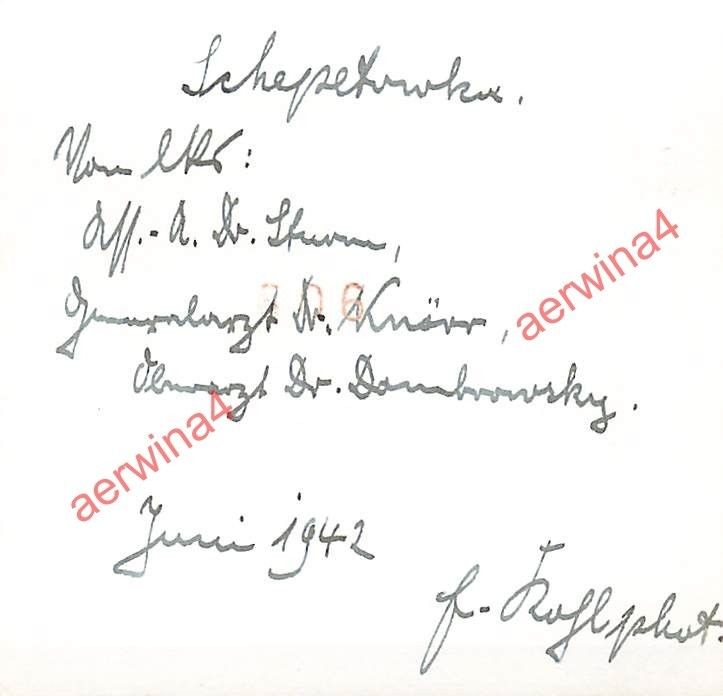 Schepetowka.
Von lks:
Ass.-A. Dr. Sturm,
aerwina4
Generalarzt Dr. Knörr,
Oberarzt Dr. Dombrowsky.
aerwina4
Juni 1942
Kohl phot.